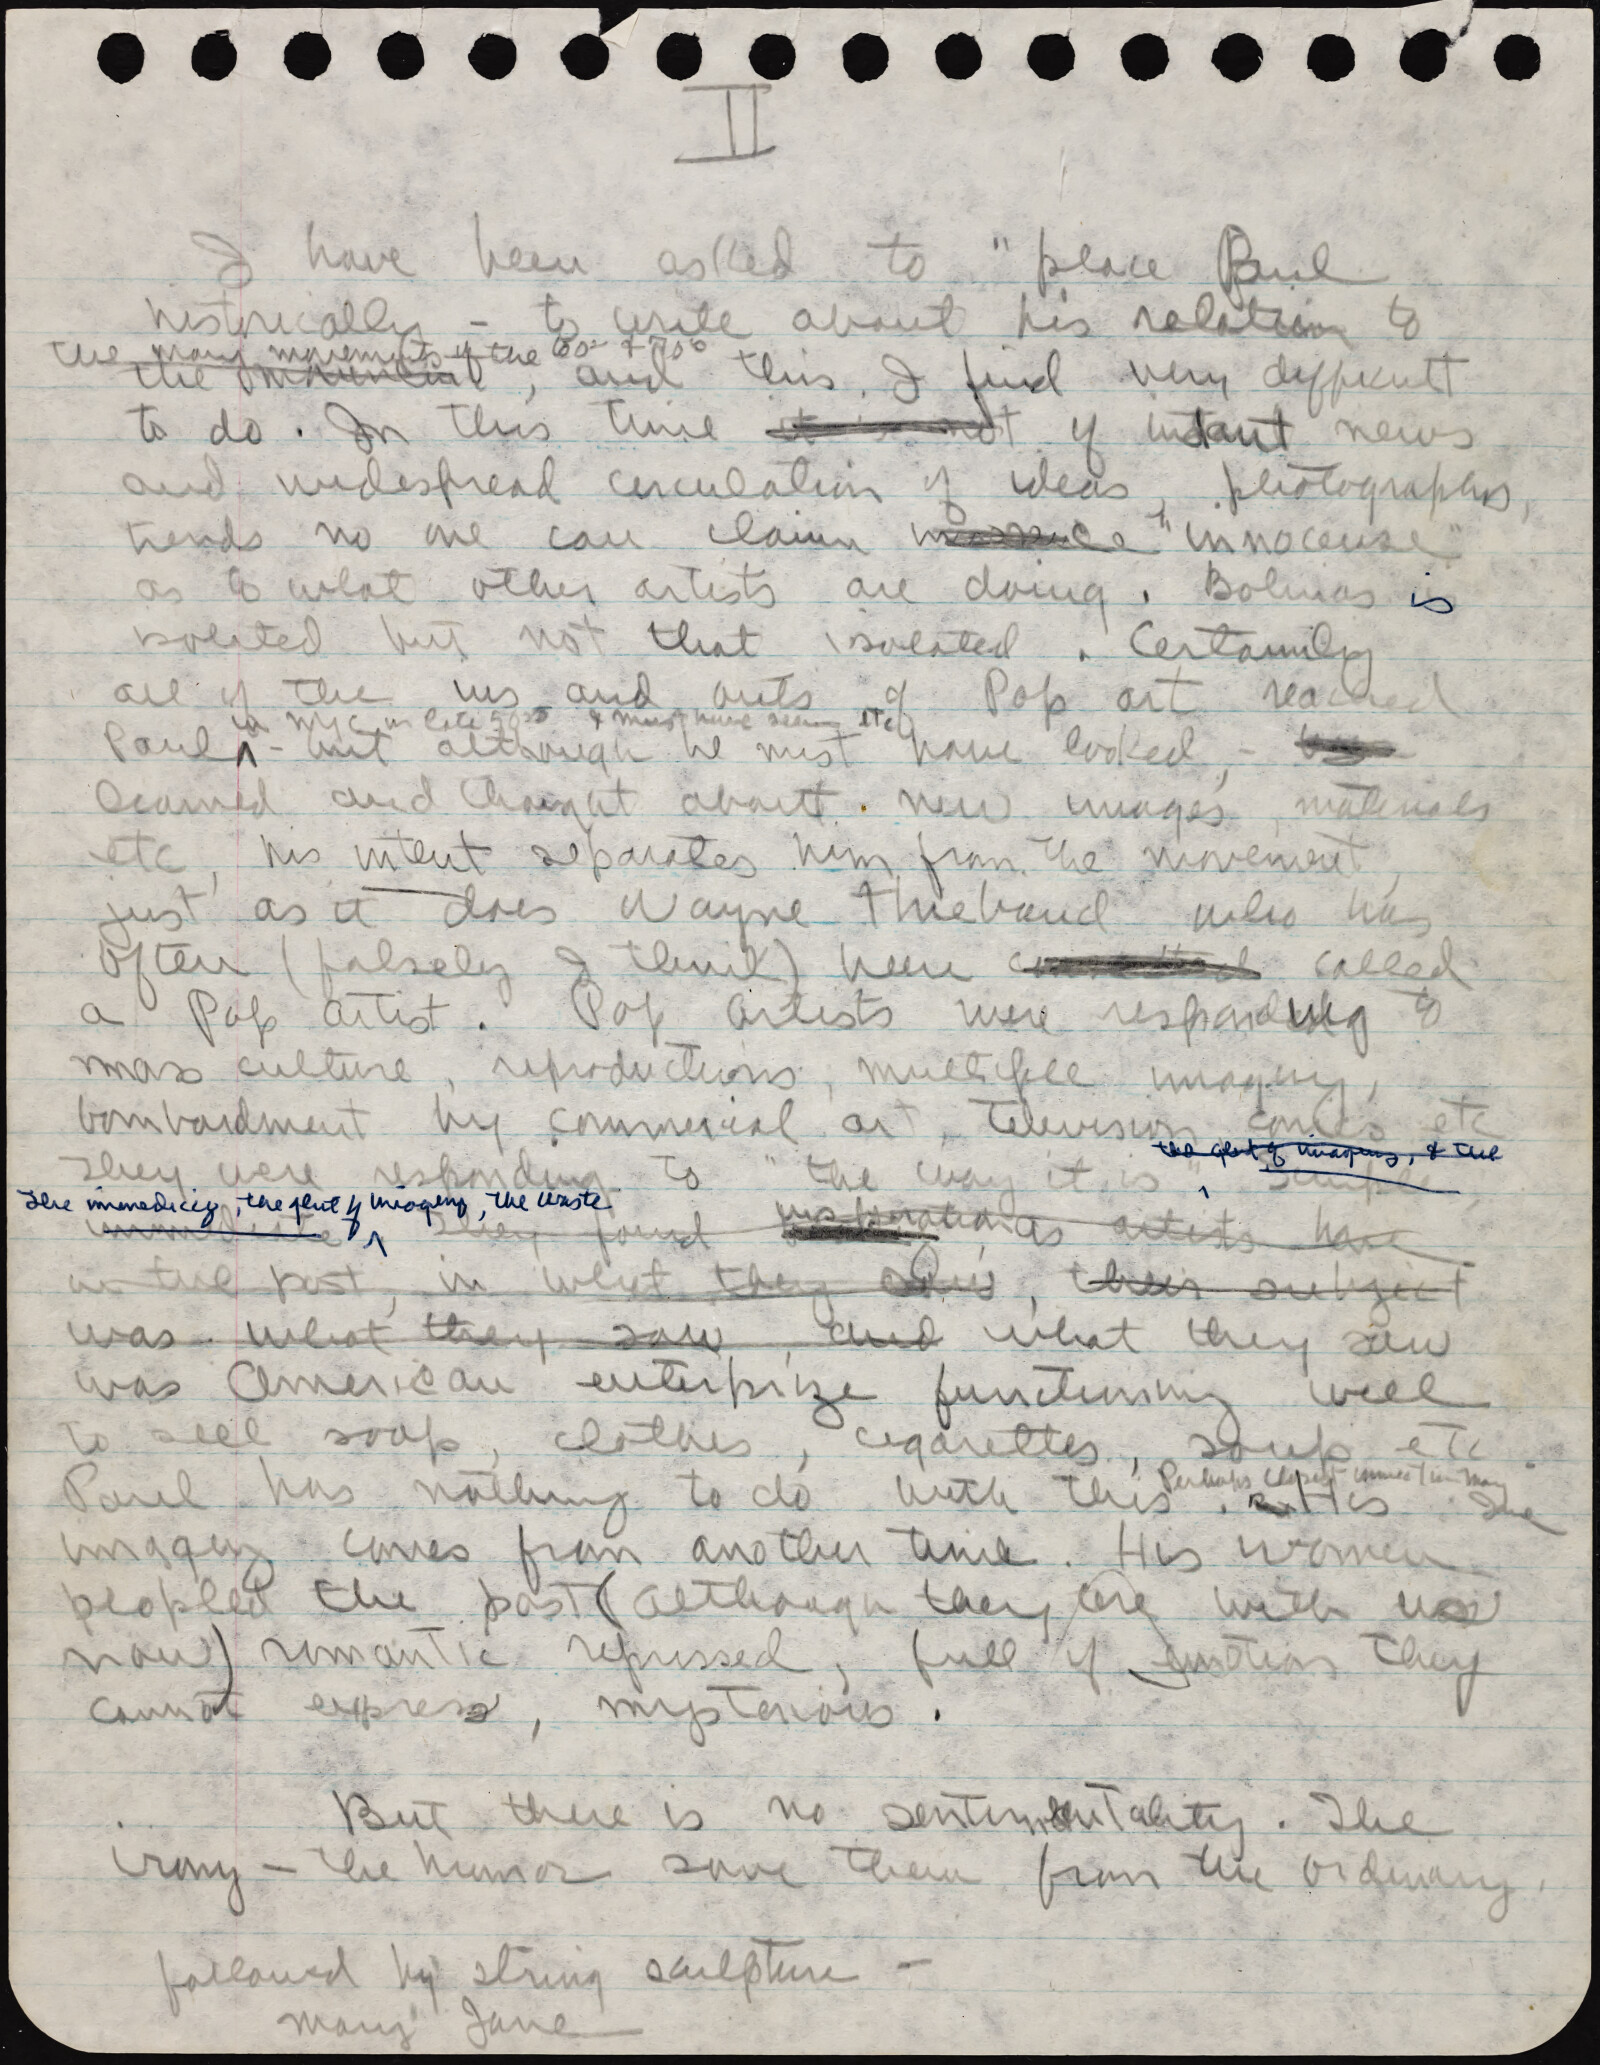 II
I have been asked to "place Paul
historically - to write about his relation to
the many movements of the 60s & 70s
the , and this I find very difficult
to do. In this time it is not of instant news
and widespread circulation of ideas, photographs,
trends no one can claim "innocense"
as to what other artists are doing. Bolinas is
isolated but not that isolated. Certainly
all of the ins and outs of Pop art reached
in NYC in late 50s & must have seen etc
Paul - but although he must have looked, -
learned and thought about new images, materials
etc, his intent separates him from the movement,
just as it does Wayne Thiebaud who has
often (falsely I think) been called
a Pop artist. Pop artists were responding to
mass culture, reproductions, multiple imagery,
bombardment by commercial art, television, comics etc
the glut of imagery, & the
They were responding to "the way it is"
The immediacy, the glut of imagery, the waste
immediate They found inspiration, as artists have
in the past, in what they saw, their subject
was what they saw, and what they saw
was American enterprize functioning well
to sell soap, clothes, cigarettes, soup etc.
Perhaps closest connection Mary
Paul has nothing to do with this. His Jane
imagery comes from another time. His women
peopled the past (although they are with us
now) romantic repressed, full of emotions they
cannot express, mysterious.
But there is no sentimentality. The
irony - the humor save them from the ordinary.
followed by string sculpture -
Mary Jane